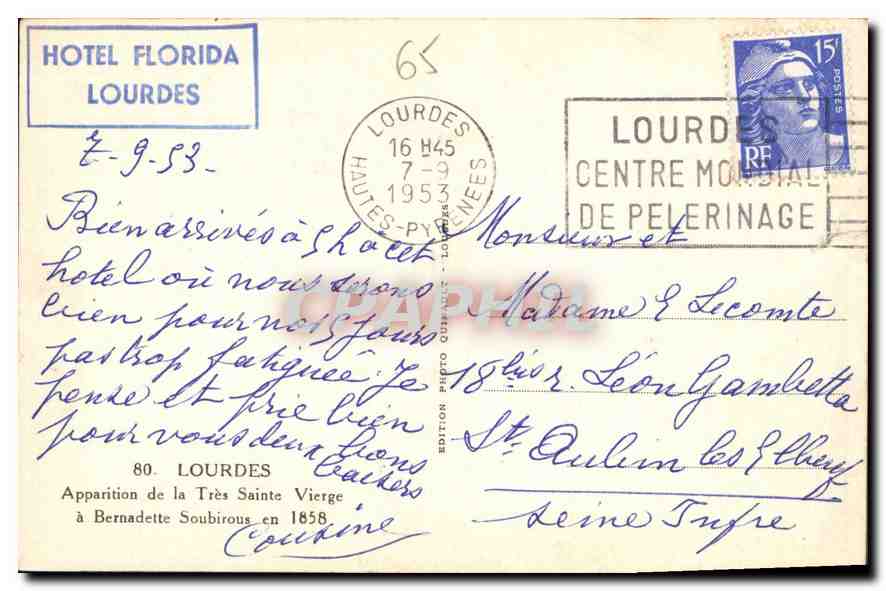 HOTEL FLORIDA
LOURDES
65
7-9-53-
LOURDES
16 H45
7-9
1953
HAUTES-PYRENEES
15F
POSTES
RF
LOURDES
CENTRE MONDIAL
DE PELERINAGE
Bien arrivés à 5h à cet
hotel où nous serons
bien pour nos 5 jours
pas trop fatiguée. Je
pense et prie bien
pour vous deux bons
baisers
Cousine
80. LOURDES
Apparition de la Très Sainte Vierge
à Bernadette Soubirous en 1858
EDITION PHOTO QUIBAULT - LOURDES
CPAPHIL
Monsieur et
Madame E Lecomte
18 bis r. Léon Gambetta
St. Aubin les Elbeuf
Seine Infre